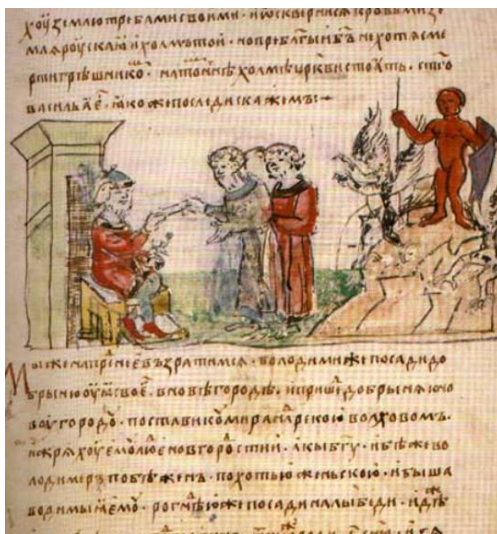 хоу землю требами своими · и ѡсквернися кровьми зе
мля роускаꙗ и холмъ тои · но преблгыи бъ не хотя сме
рти грѣшнико · на томже холмѣ црькви стоить · стго
васильꙗ е · ꙗкоже последи скажемъ :·
Мы же на преднеѥ възратимся · володимиⷬ же посади до
брыню оуꙗ своѥ · в новѣгородѣ · и прише добрыня к но
воугородоу · постави комира наⷣ рекою волховомъ ·
и жряхоу емоу людиѥ новгороⷣстии · акы бгу · и бѣ же во
лодимеръ побѣженъ · похотью женьскою · и быша
водимыꙗ емоу · рогнѣⷣ юже посади на лыбеди · идѣⷤ